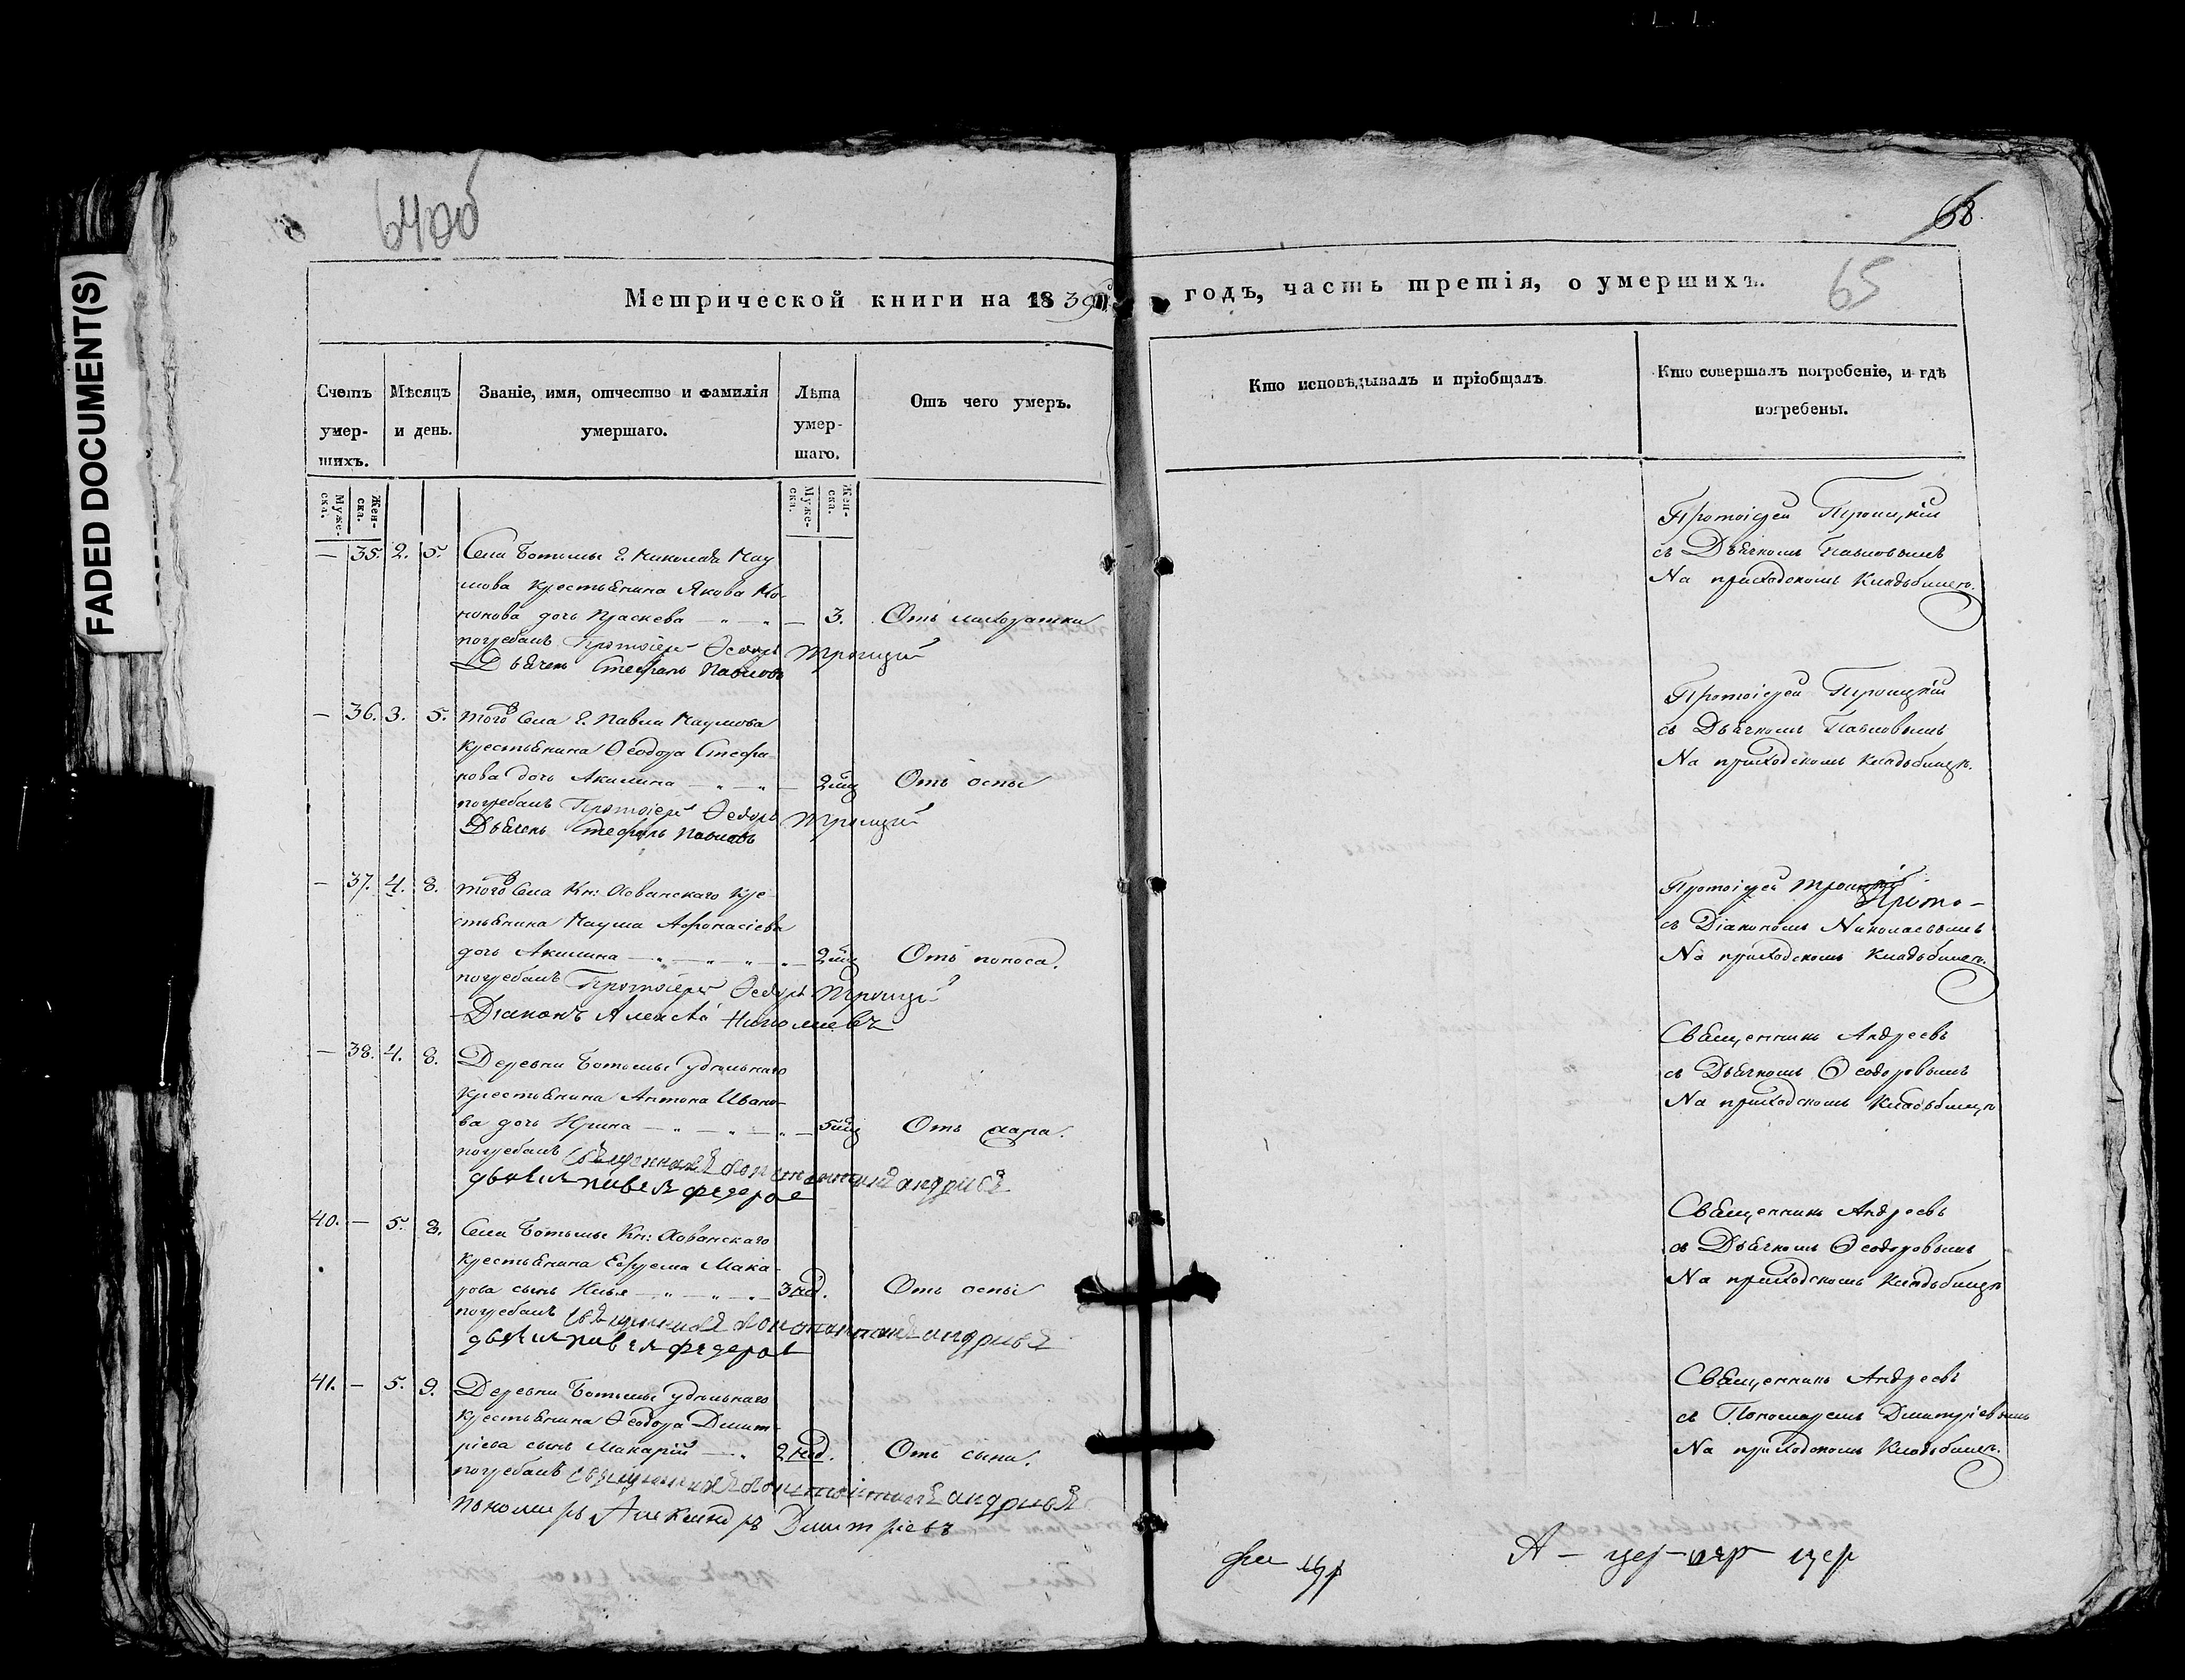 FADED DOCUMENT(S)
64об
68.
65
Метрической книги на 1839й годъ, часть третія, о умершихъ.
Счетъ умер-шихъ.
Мѣсяцъ и день.
Званіе, имя, отчество и фамилія умершаго.
Лѣта умер-шаго.
Отъ чего умеръ.
Кто исповѣдывалъ и пріобщалъ
Кто совершалъ погребеніе, и гдѣ погребены.
Муже-ска.
Жен-ска.
Муже-ска.
Жен-ска.
— 35. 2. 5. Села Ботьмы г. Николая Нау
мова крестьянина Якова Ко-
нонова дочь Праскева — 3. Отъ лихорадки
погребалъ Протоіерей Ѳедоръ Троицкій
Дьячекъ Стефанъ Павловъ
Протоіерей Троицкій
съ Дьячкомъ Павловымъ
На приходскомъ кладбищѣ.
— 36. 3. 5. того Села г. Павла Наумова
крестьянина Ѳеодора Стефа-
нова дочь Акилина — 2 мц Отъ оспы
погребалъ Протоіерей Ѳедоръ Троицкій
Дьячекъ Стефанъ Павловъ
Протоіерей Троицкій
съ Дьячкомъ Павловымъ
На приходскомъ кладбищѣ.
— 37. 4. 8. того Села Кн: Хованскаго кре
стьянина Наума Афонасіева
дочь Акилина — 2 мц Отъ поноса.
погребалъ Протоіерей Ѳедоръ Троицкій
Діаконъ Алексѣй Николаевъ
Протоіерей Троицкій
Прото-
съ Діакономъ Николаевымъ
На приходскомъ кладбищѣ.
— 38. 4. 8. Деревни Ботьмы удѣльнаго
крестьянина Антона Ивано-
ва дочь Ирина — 5 мц Отъ жара.
погребалъ священникъ константинъ андриевъ
дьячикъ павелъ федоров
Священникъ Андреевъ
съ Дьячкомъ Ѳеодоровымъ
На приходскомъ кладбищѣ
40. — 5. 8. Села Ботьмы Кн: Хованскаго
крестьянина Ефрема Мака-
рова сынъ Илья — 3 нед. Отъ оспы
погребалъ священникъ константинъ андриевъ
дьячикъ павелъ федоров
Священникъ Андреевъ
съ Дьячкомъ Ѳеодоровымъ
На приходскомъ кладбищѣ
41. — 5. 9. Деревни Ботьмы удѣльнаго
крестьянина Ѳеодора Димит-
ріева сынъ Макарій — 2 нед. Отъ сыпи.
погребалъ священникъ константинъ андриевъ
пономарь Александръ Димитріевъ
Священникъ Андреевъ
съ Пономаремъ Димитріевымъ
На приходскомъ кладбищѣ.